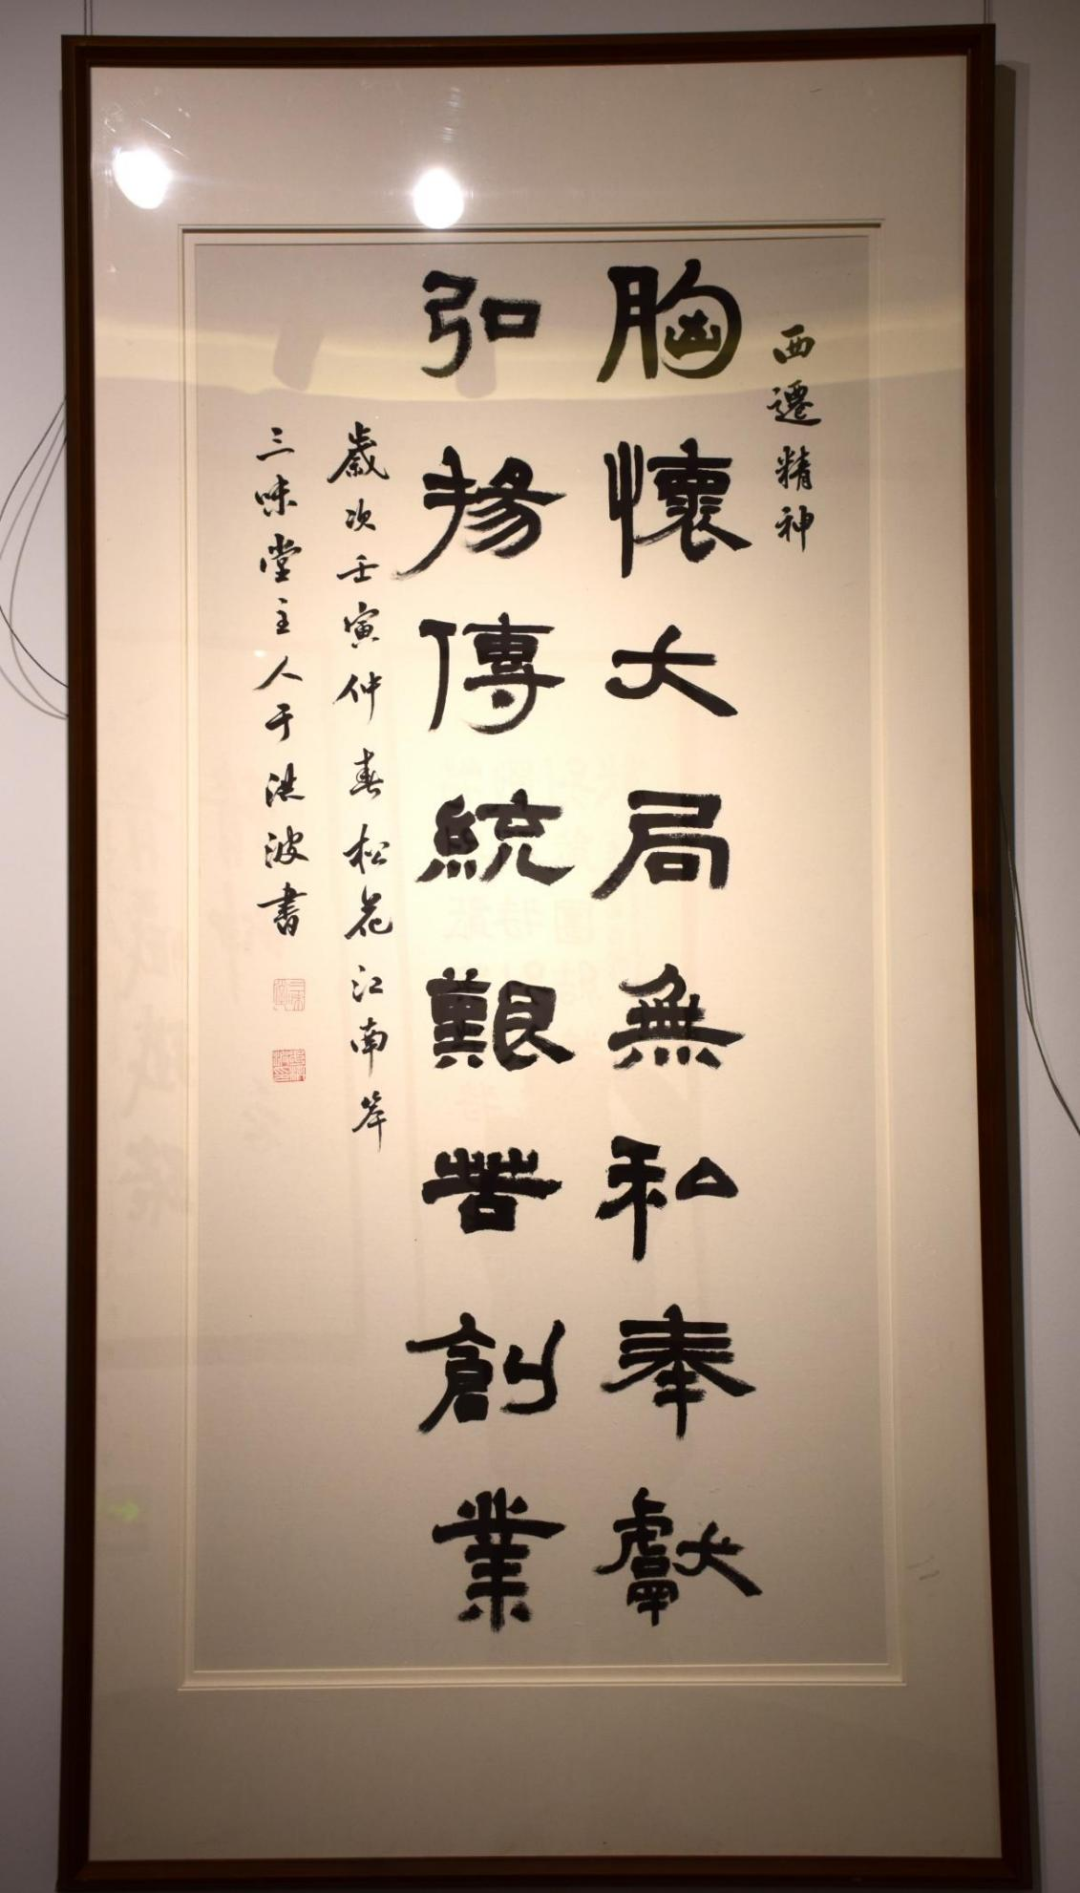 西遷精神
胸懷大局無私奉獻
弘揚傳統艱苦創業
歲次壬寅仲春松花江南岸
三味堂主人于洪波書